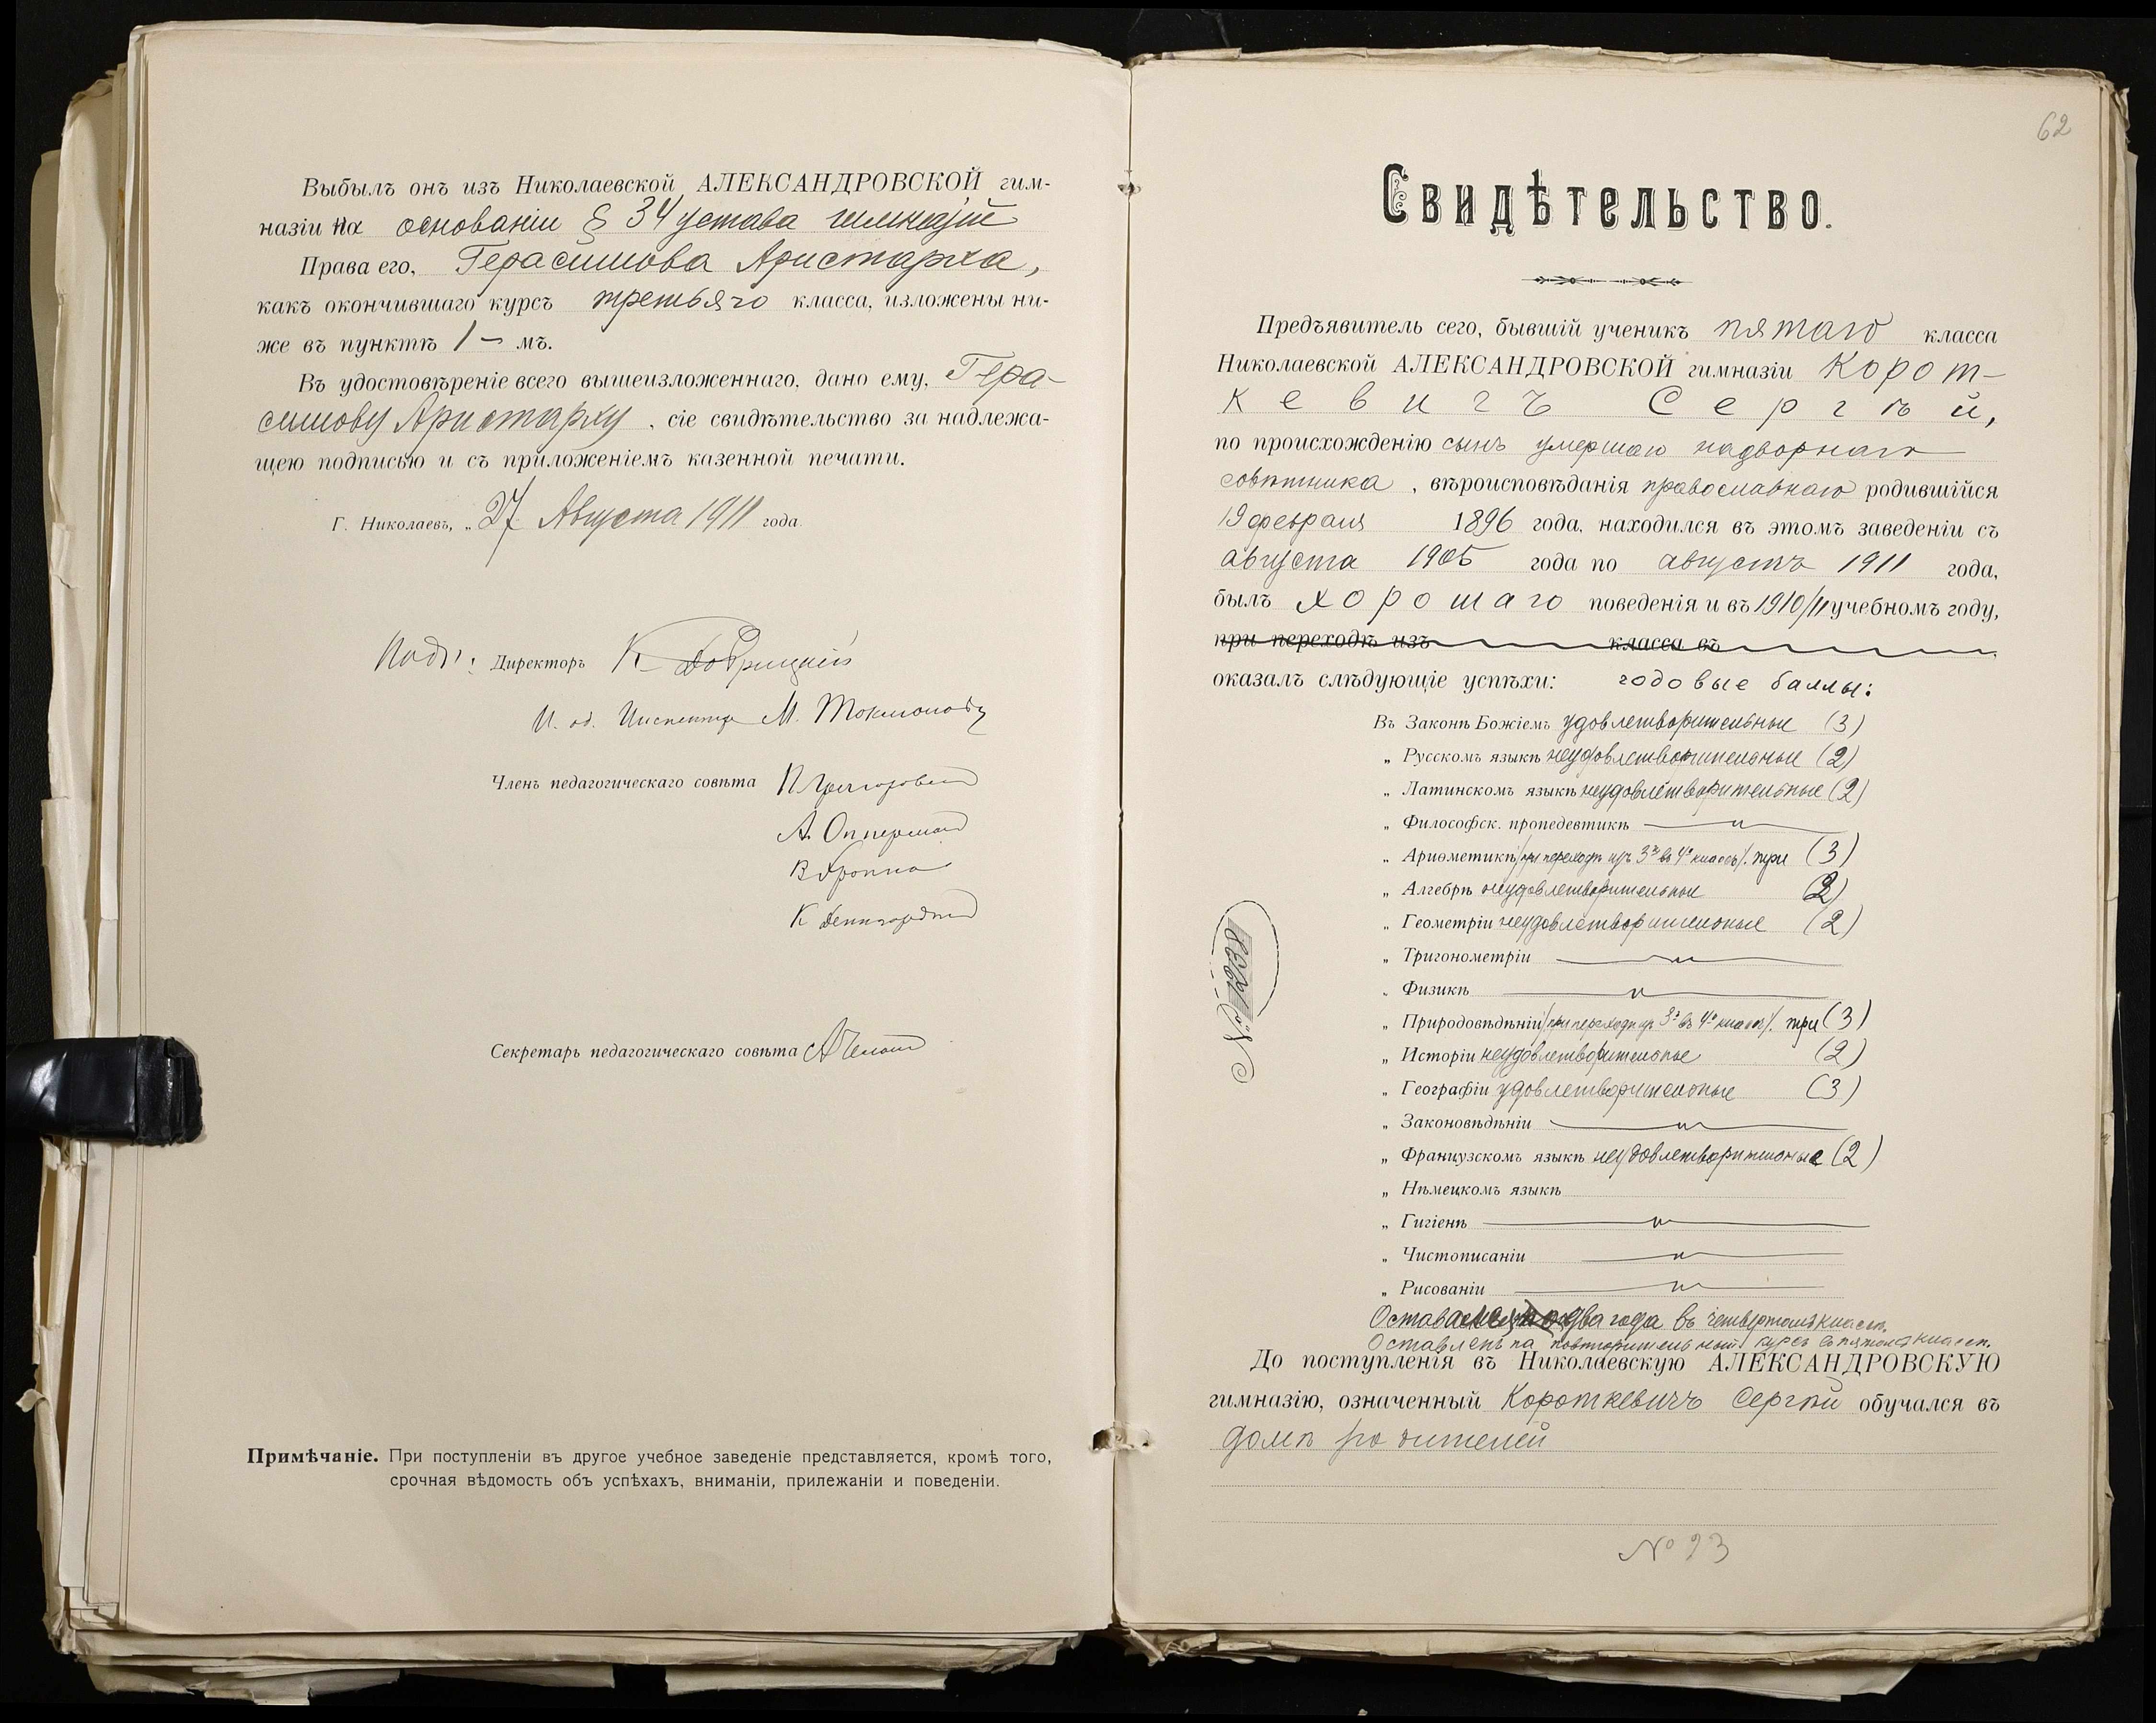 Выбылъ онъ изъ Николаевской АЛЕКСАНДРОВСКОЙ гим-
назіи на основаніи § 34 устава гимназій
Права его, Герасимова Аристарха,
какъ окончившаго курсъ третьяго класса, изложены ни-
же въ пунктѣ 1 – мъ.
Въ удостовѣреніе всего вышеизложеннаго, дано ему, Гера-
симову Аристарху, сіе свидѣтельство за надлежа-
щею подписью и съ приложеніемъ казенной печати.
Г. Николаевъ, „27 Августа 1911 года.
Подп.: Директоръ К.
И. об. Инспектора М.
Членъ педагогическаго совѣта П. Григоровскій
А. Опперманъ
В. Кроппа
К.
Секретарь педагогическаго совѣта А.
Примѣчаніе. При поступленіи въ другое учебное заведеніе представляется, кромѣ того,
срочная вѣдомость объ успѣхахъ, вниманіи, прилежаніи и поведеніи.
62
Свидѣтельство.
Предъявитель сего, бывшій ученикъ пятаго класса
Николаевской АЛЕКСАНДРОВСКОЙ гимназіи Корот-
кевичъ Сергѣй,
по происхожденію сынъ умершаго надворнаго
совѣтника, вѣроисповѣданія православнаго родившійся
19 февраля 1896 года, находился въ этомъ заведеніи съ
августа 1905 года по августъ 1911 года,
былъ хорошаго поведенія и въ 1910/11 учебномъ году,
при переходѣ изъ класса въ
оказалъ слѣдующіе успѣхи: годовые баллы:
Въ Законѣ Божіемъ удовлетворительные (3)
„ Русскомъ языкѣ неудовлетворительные (2)
„ Латинскомъ языкѣ неудовлетворительные (2)
„ Философск. пропедевтикѣ
„ Ариѳметикѣ /при переходѣ изъ 3го въ 4й классъ/. три (3)
„ Алгебрѣ неудовлетворительные (2)
„ Геометріи неудовлетворительные (2)
„ Тригонометріи
„ Физикѣ
„ Природовѣдѣніи /при переходѣ изъ 3го въ 4й классъ/. три (3)
„ Исторіи неудовлетворительные (2)
„ Географіи удовлетворительные (3)
„ Законовѣдѣніи
„ Французскомъ языкѣ неудовлетворительные (2)
„ Нѣмецкомъ языкѣ
„ Гигіенѣ
„ Чистописаніи
„ Рисованіи
два года въ четвертомъ классѣ.
Оставленъ на повторительный курсъ въ пятомъ классѣ.
До поступленія въ Николаевскую АЛЕКСАНДРОВСКУЮ
гимназію, означенный Короткевичъ Сергѣй обучался въ
домѣ родителей
№ 1238
№ 23